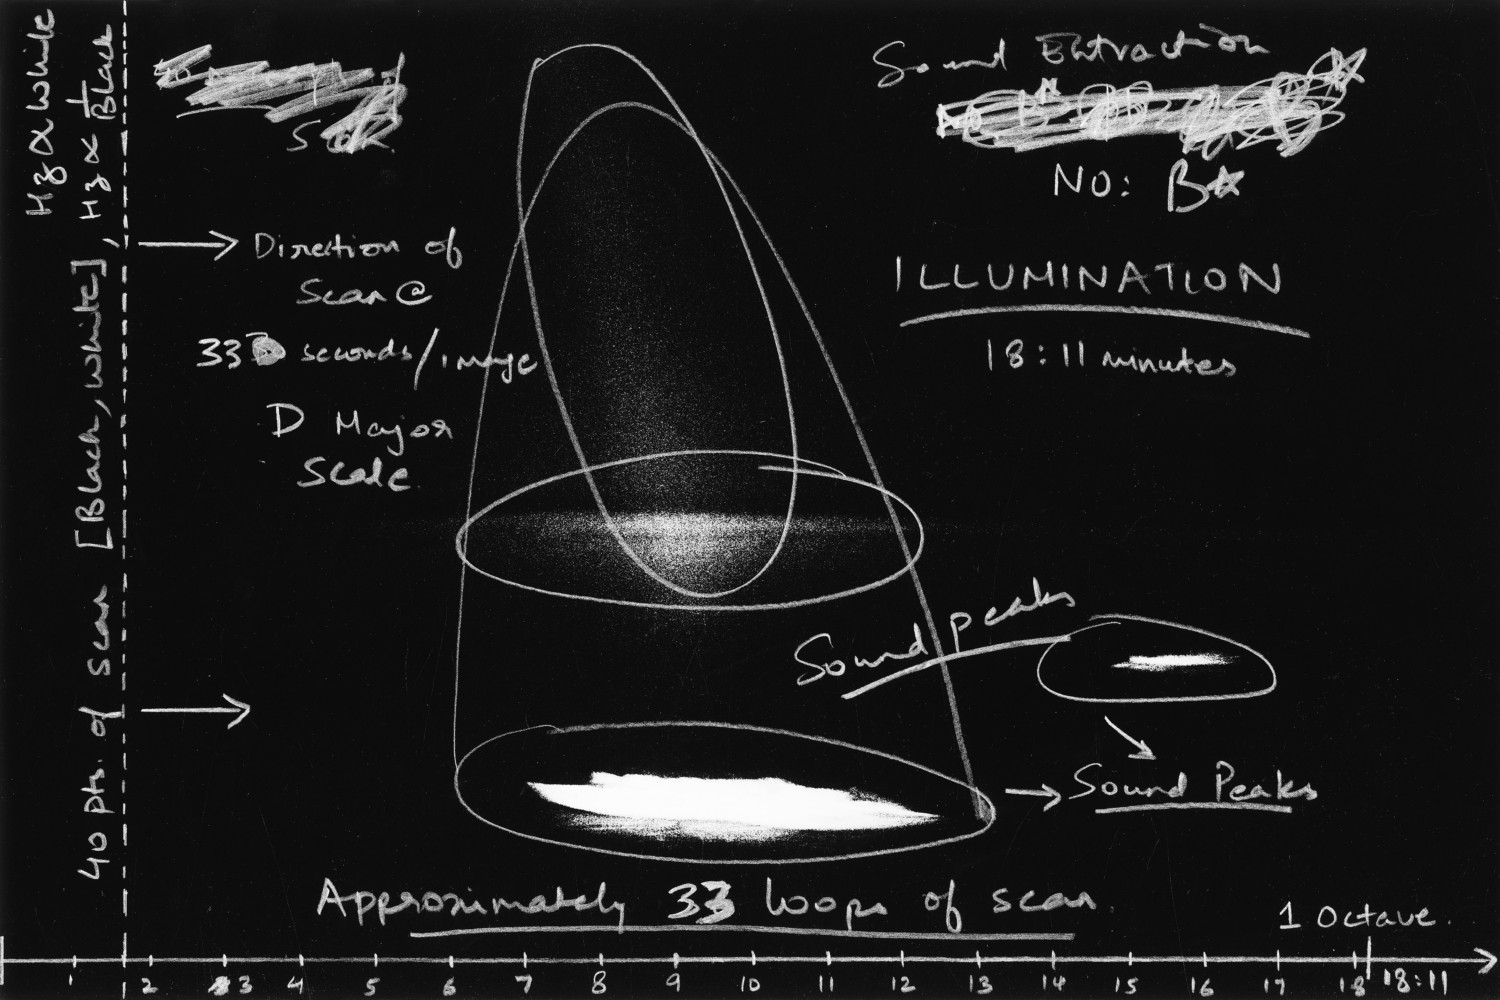 Hz ∝ white
40 pts. of scan [Black, white], Hz ∝ 1/Black
Direction of
Scan @
33 seconds/image
D Major
Scale
Sound Extraction
NO: B☆
ILLUMINATION
18:11 minutes
Sound peaks
→ Sound Peaks
Approximately 33 loops of scan.
1 Octave.
1 2 3 4 5 6 7 8 9 10 11 12 13 14 15 16 17 18 18:11